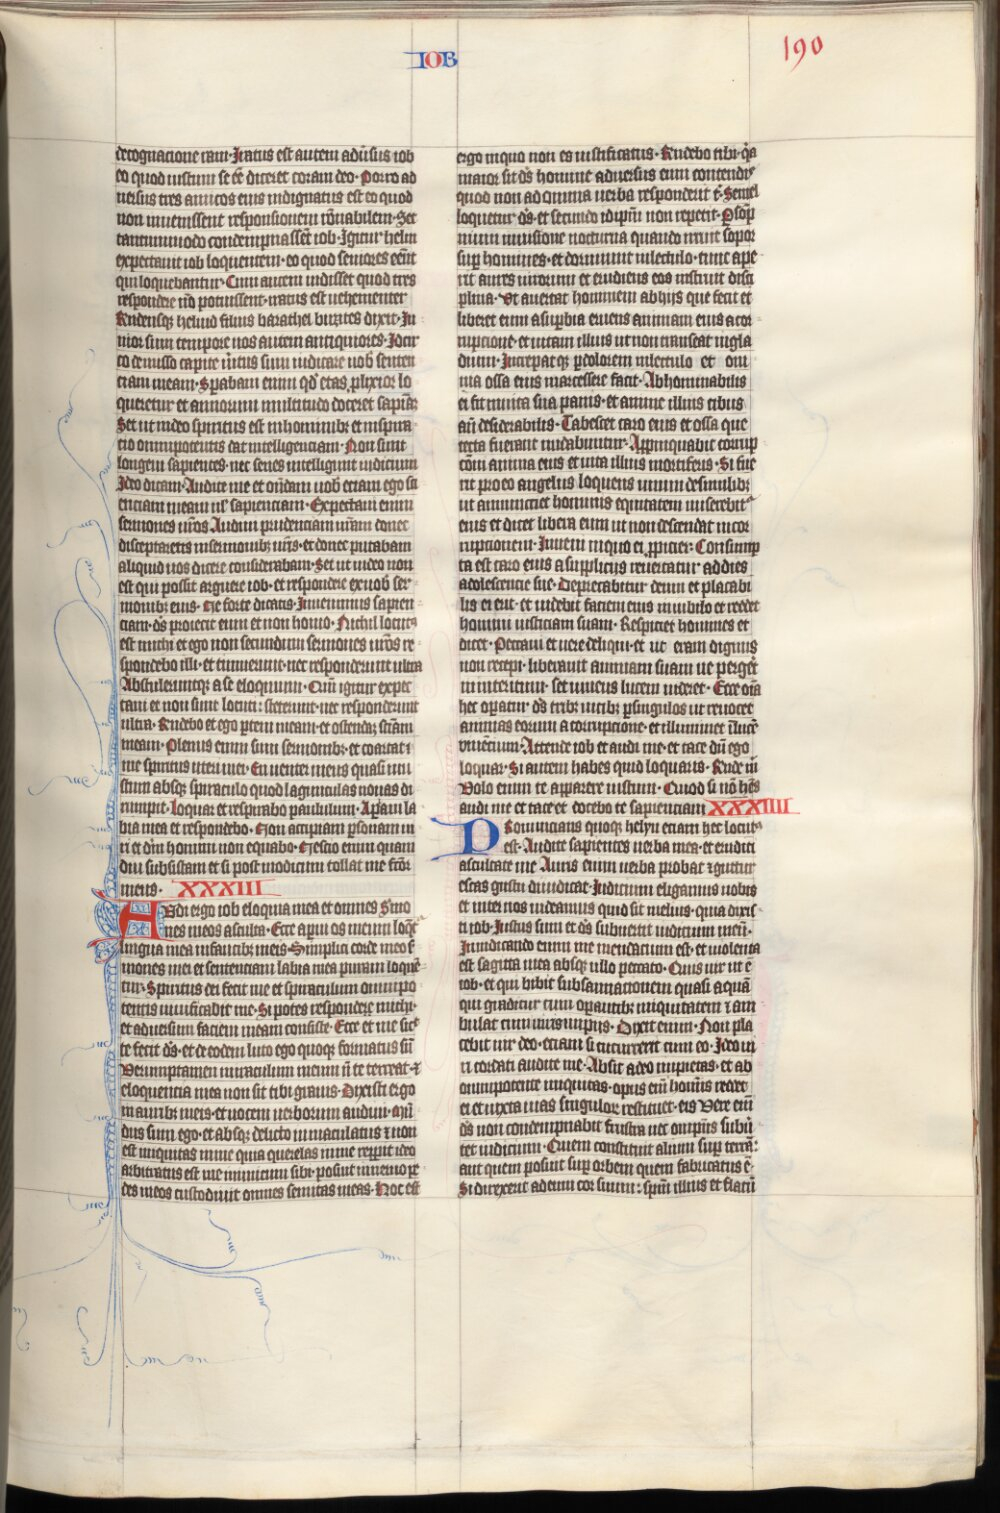 IOB
190
decognacione ram· Iratus est autem adu̅sus iob
eo quod iustum se e̅e̅ diceret coram deo· Porro ad
uersus tres amicos eius indignatus est eo quod
non inuenissent responsionem ro̅nabilem· Set
tantummodo condempnasse̅t iob· Igitur heliu
expectauit iob loquentem· eo quod seniores ee̅nt
qui loquebantur· Cum autem uidisset quod tres
respondere no̅ potuissent· iratus est uehementer
Rndensq; heliud filius barachel buzites dixit· Iu
nior sum tempore uos autem antiquiores· Idcir
co demisso capite u̅itus sum iudicare uob̅ senten
ciam meam· Sperabam enim qd̅ etas plixior lo
queretur et annorum multitudo doceret sapia̅z
Set ut uideo spiritus est in hominibz et inspira
cio omnipotentis dat intelligenciam· Non sunt
longeui sapientes· nec senes intelligunt iudicium
Ideo dicam· Audite me et on̅dam uob̅ eciam ego sa
enciam meam uel̅ sapienciam· Expectaui enim
sermones ur̅os Audiui prudenciam ur̅am donec
disceptaretis in sermonibz ur̅is· et donec putabam
aliquid uos dicere considerabam· Set ut uideo non
est qui possit arguere iob· et respondere ex uob̅ ser
monibz eius· Ne forte dicatis· Inuenimus sapien
ciam· ds̅ proiecit eum et non homo· Nichil locut9
est michi et ego non secundum sermones ur̅os re
spondebo illi· et timuerunt· nec responderunt ultra
Abstuleruntq; a se eloquium· Cum igitur expec
taui et non sunt locuti: steterunt· nec responderunt
ultra· Rndebo et ego ptem meam· et ostenda̅ scia̅m
meam· Plenus enim sum sermonibz· et coartat ⁊
me spiritus uteri mei· En uenter meus quasi mu
stum absq; spiraculo quod lagunculas nouas di
rumpit· Loquar et respirabo paululum· Apiam la
bia mea et respondebo· Non accipiam psonam ui
ri et dm̅ homini non equabo· Nescio enim quam
diu subsistam et si post modicum tollat me fco̅r
meus· XXXIII
Audi ergo iob eloquia mea et omnes s̅mo
nes meos asculta· Ecce apui os meum loq̅t
lingua mea in faucibz meis· Simplici corde meo s̅
mones mei et sentenciam labia mea puram loque̅
tur· Spiritus dei fecit me et spiraculum omnipo
tentis uiuificabit me· Si potes respondere michi·
et aduersum faciem meam consiste· Ecce et me sic̅
te fecit ds̅· et de eodem luto ego quoq; formatus su̅
Verumptamen miraculum meum n̅ te terreat· ⁊
eloquencia mea non sit tibi grauis· Dixisti ergo
in auribz meis· et uocem uerborum audiui· mu̅
dus sum ego· et absq; delicto inmaculatus ⁊ non
est iniquitas in me quia querelas in me repit ideo
arbitratus est me inimicum sibi· posuit in neruo pe
des meos custodiuit omnes semitas meas· Hoc est
ergo in quo non es iustificatus· Rndebo tibi· q̅a
maior sit ds̅ homine aduersus eum contendis
quod non ad omnia uerba responderit t̅· Semel
loquetur ds̅· et secundo id ipsu̅m non repetit· P sop
nium in uisione nocturna quando irruit sopor
sup homines· et dormiunt in lectulo· tunc ape
rit aures uirorum et erudiens eos instruit disci
plina· Vt auertat hominem ab hijs que fecit et
liberet eum a supbia eruens animam eius a cor
rupcione· et uitam illius ut non transeat in gla
dium· Increpat q; p dolorem in lectulo et om
nia ossa eius marcessere facit· Abhominabilis
ei fit in uita sua panis· et anime illius cibus
an̅ desiderabilis· Tabescet caro eius et ossa que
tecta fuerant nudabuntur· Appinquabit corrup
co̅ni anima eius et uita illius mortiferis· Si fue
rit pro eo angelus loquens unum de similibz
ut annunciet hominis equitatem miserebit
eius et dicet libera eum ut non descendat in cor
rupcionem· Inueni in quo ei ppicier· Consump
ta est caro eius a suppliciis reuertatur ad dies
adolescencie sue· Deprecabitur deum et placabi
lis ei erit· et uidebit faciem eius in iubilo et reddet
homini iusticiam suam· Respiciet homines et
dicet· Peccaui et uere deliqui· et ut eram dignus
non recepi· liberauit animam suam ne pergeret
in interitum· set uiuens lucem uideret· Ecce oi̅a
hec opatur ds̅ tribz uicibz p singulos ut reuocet
animas eorum a corrupcione· et illuminet i̅ luce̅
uiuencium· Attende iob et audi me· et tace du̅ ego
loquar· Si autem habes quid loquaris· Rnde m̅
Volo enim te apparere iustum· Quod si no̅ he̅s
audi me et tace et docebo te sapienciam XXXIIII
Pronuncians quoq; helyu eciam hec locut9
est· Audite sapientes uerba mea· et eruditi
ascultate me Auris enim uerba probat ⁊ guttur
escas gustu diiudicat· Iudicium eligamus nobis
et inter nos uideamus quid sit melius· quia dixis
ti iob· Iustus sum et ds̅ subuertit iudicium meu̅·
In iudicando enim me mendacium est· et uiolenta
est sagitta mea absq; ullo peccato· Quis uir ut e̅
iob· et qui bibit subsannacionem quasi aqua̅
qui graditur cum opantibz iniquitatem ⁊ am
bulat cum uiris impiis· Dixit enim· Non pla
cebit uir deo· eciam si cucurrerit cum eo· Ideo ui
ri cordati audite me· Absit a deo impietas· et ab
omnipotente iniquitas· opus ei̅m ho̅inis reddet
ei et iuxta uias singulor restituet· eis Vere ei̅m
ds̅ non condempnabit frustra nec omnipns̅ subu̅
tet iudicium· Quem constituit alium sup terra̅:
aut quem posuit sup orbem quem fabricatus e̅·
Si direxerit ad eum cor suum: spm̅ illius et flatu̅